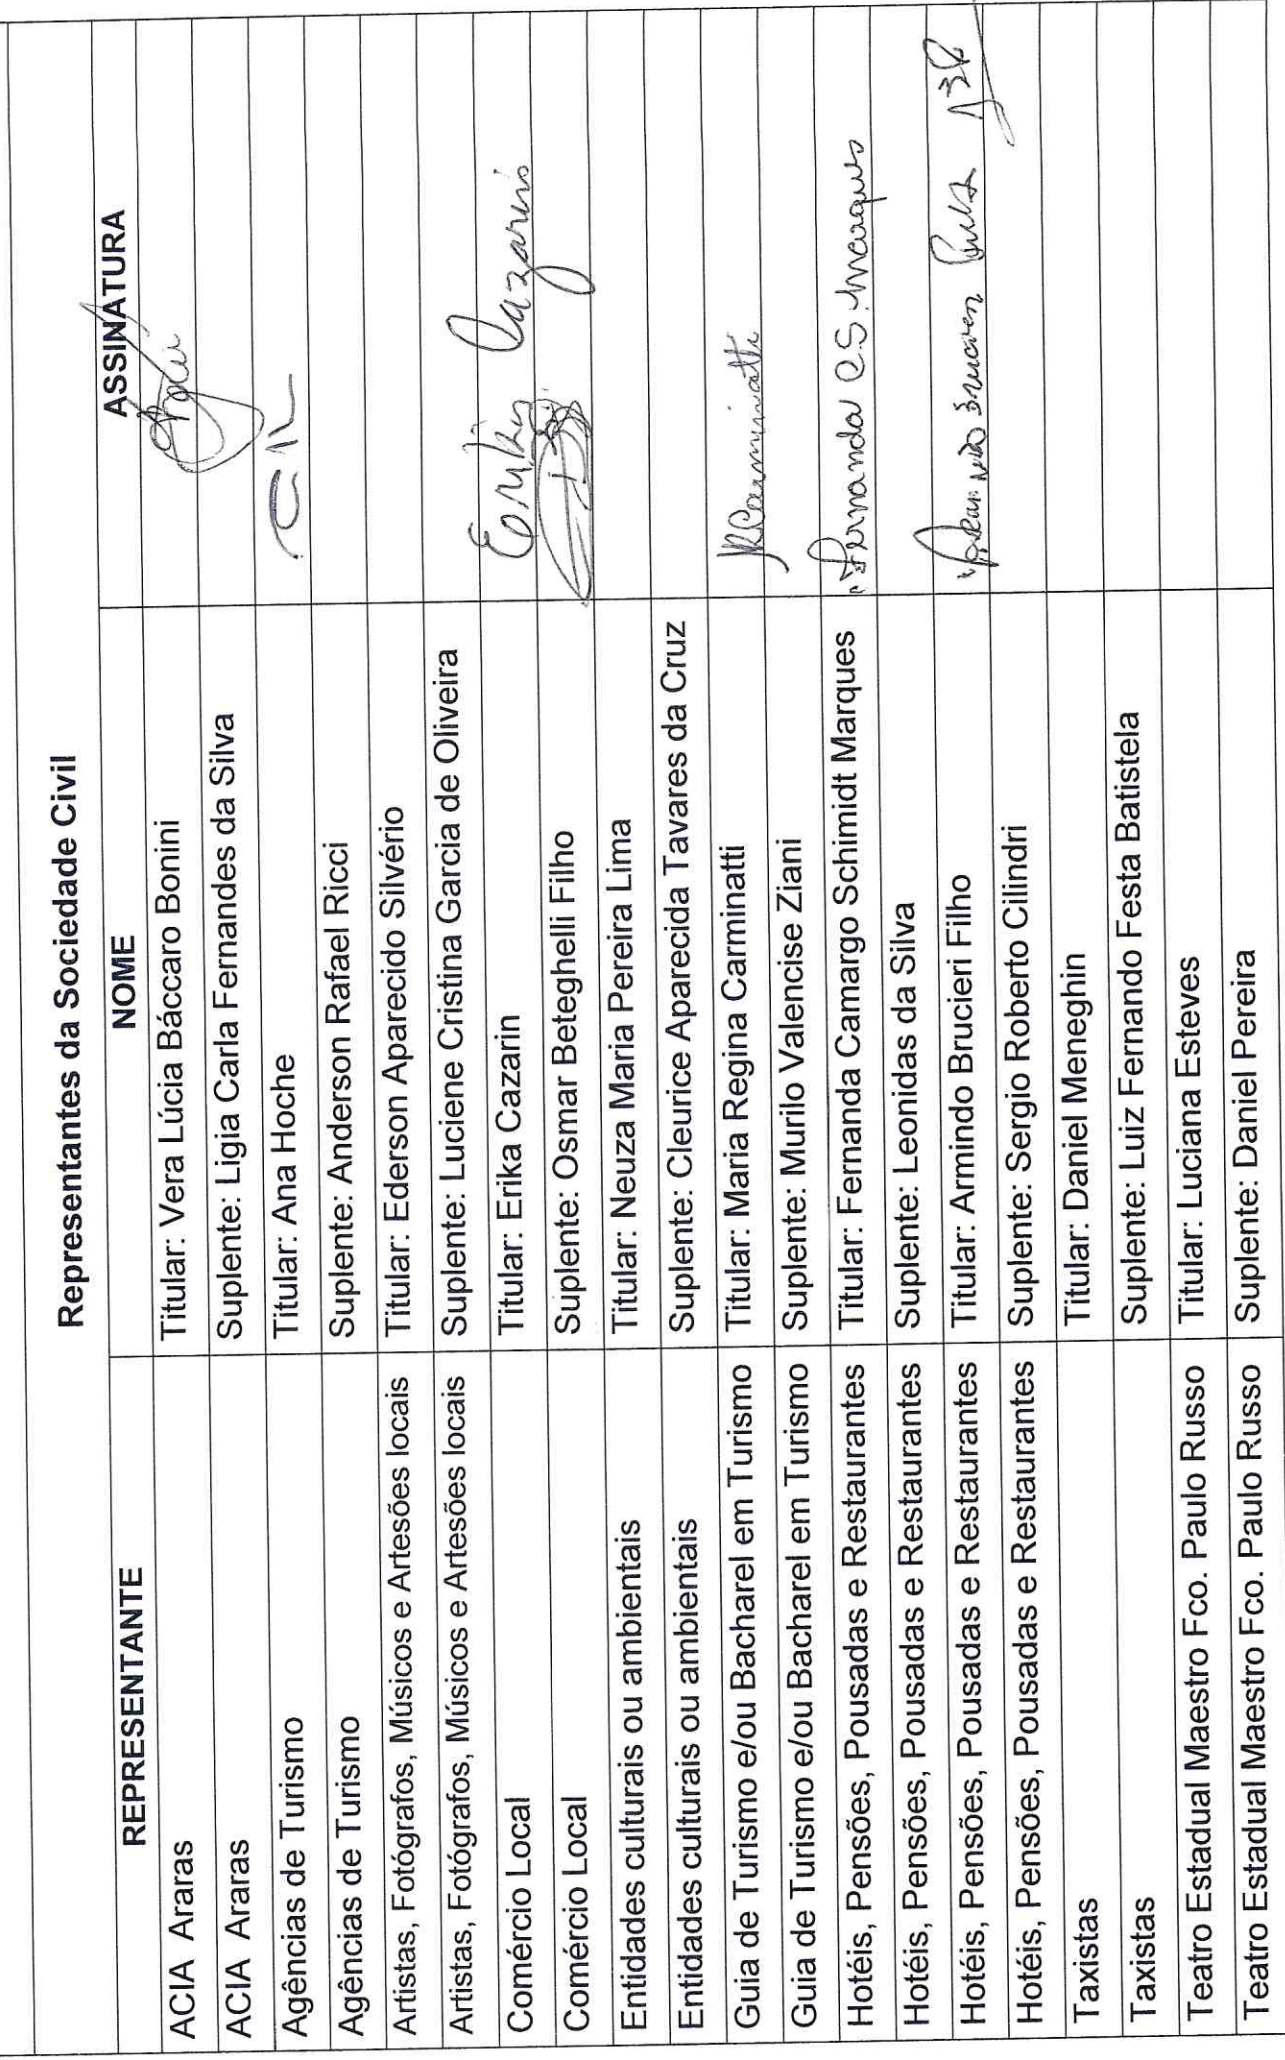 Representantes da Sociedade Civil
REPRESENTANTE NOME ASSINATURA
ACIA Araras Titular: Vera Lúcia Báccaro Bonini
ACIA Araras Suplente: Ligia Carla Fernandes da Silva
Agências de Turismo Titular: Ana Hoche
Agências de Turismo Suplente: Anderson Rafael Ricci
Artistas, Fotógrafos, Músicos e Artesões locais Titular: Ederson Aparecido Silvério
Artistas, Fotógrafos, Músicos e Artesões locais Suplente: Luciene Cristina Garcia de Oliveira
Comércio Local Titular: Erika Cazarin Erika Cazarin
Comércio Local Suplente: Osmar Beteghelli Filho
Entidades culturais ou ambientais Titular: Neuza Maria Pereira Lima
Entidades culturais ou ambientais Suplente: Cleurice Aparecida Tavares da Cruz
Guia de Turismo e/ou Bacharel em Turismo Titular: Maria Regina Carminatti MRCarminatti
Guia de Turismo e/ou Bacharel em Turismo Suplente: Murilo Valencise Ziani
Hotéis, Pensões, Pousadas e Restaurantes Titular: Fernanda Camargo Schimidt Marques Fernanda C.S. Marques
Hotéis, Pensões, Pousadas e Restaurantes Suplente: Leonidas da Silva
Hotéis, Pensões, Pousadas e Restaurantes Titular: Armindo Brucieri Filho
Hotéis, Pensões, Pousadas e Restaurantes Suplente: Sergio Roberto Cilindri
Taxistas Titular: Daniel Meneghin
Taxistas Suplente: Luiz Fernando Festa Batistela
Teatro Estadual Maestro Fco. Paulo Russo Titular: Luciana Esteves
Teatro Estadual Maestro Fco. Paulo Russo Suplente: Daniel Pereira